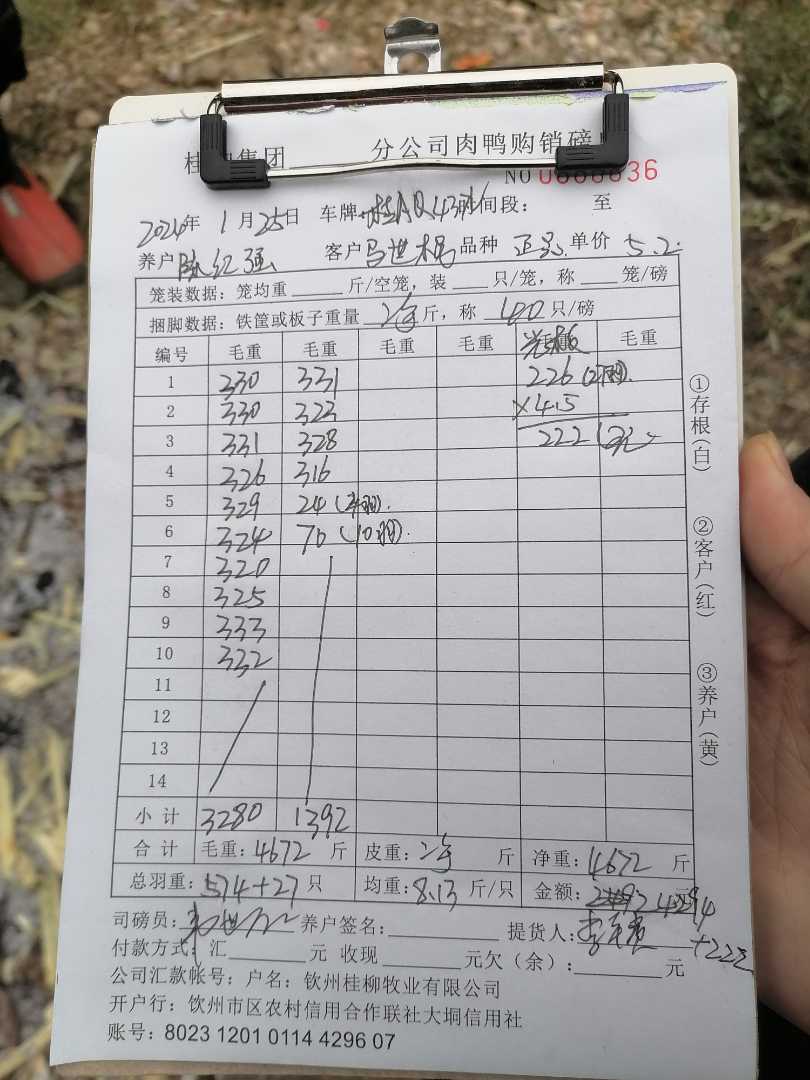 集团 分公司肉鸭购销磅
NO 36
2024年 1月25日 车牌 间段: 至
养户 陈红强 客户 马世杨 品种 正品 单价 5.2
笼装数据: 笼均重 斤/空笼, 装 只/笼, 称 笼/磅
捆脚数据: 铁筐或板子重量 斤, 称 40 只/磅
编号 毛重 毛重 毛重 毛重 毛重
1 330 331 226
2 330 323 ×4.5
3 331 328 222
4 326 316
5 329 24
6 324 76 (10羽).
7 320
8 325
9 333
10 332
11
12
13
14
小计 3280 1392
合计 毛重: 4672 斤 皮重: 斤 净重: 4672 斤
总羽重: 574+27 只 均重: 8.13 斤/只 金额: 元
司磅员: 养户签名: 提货人:
付款方式: 汇 元 收现 元欠(余): 元
公司汇款帐号: 户名: 钦州桂柳牧业有限公司
开户行: 钦州市区农村信用合作联社大垌信用社
账号: 8023 1201 0114 4296 07
①存根(白)
②客户(红)
③养户(黄)